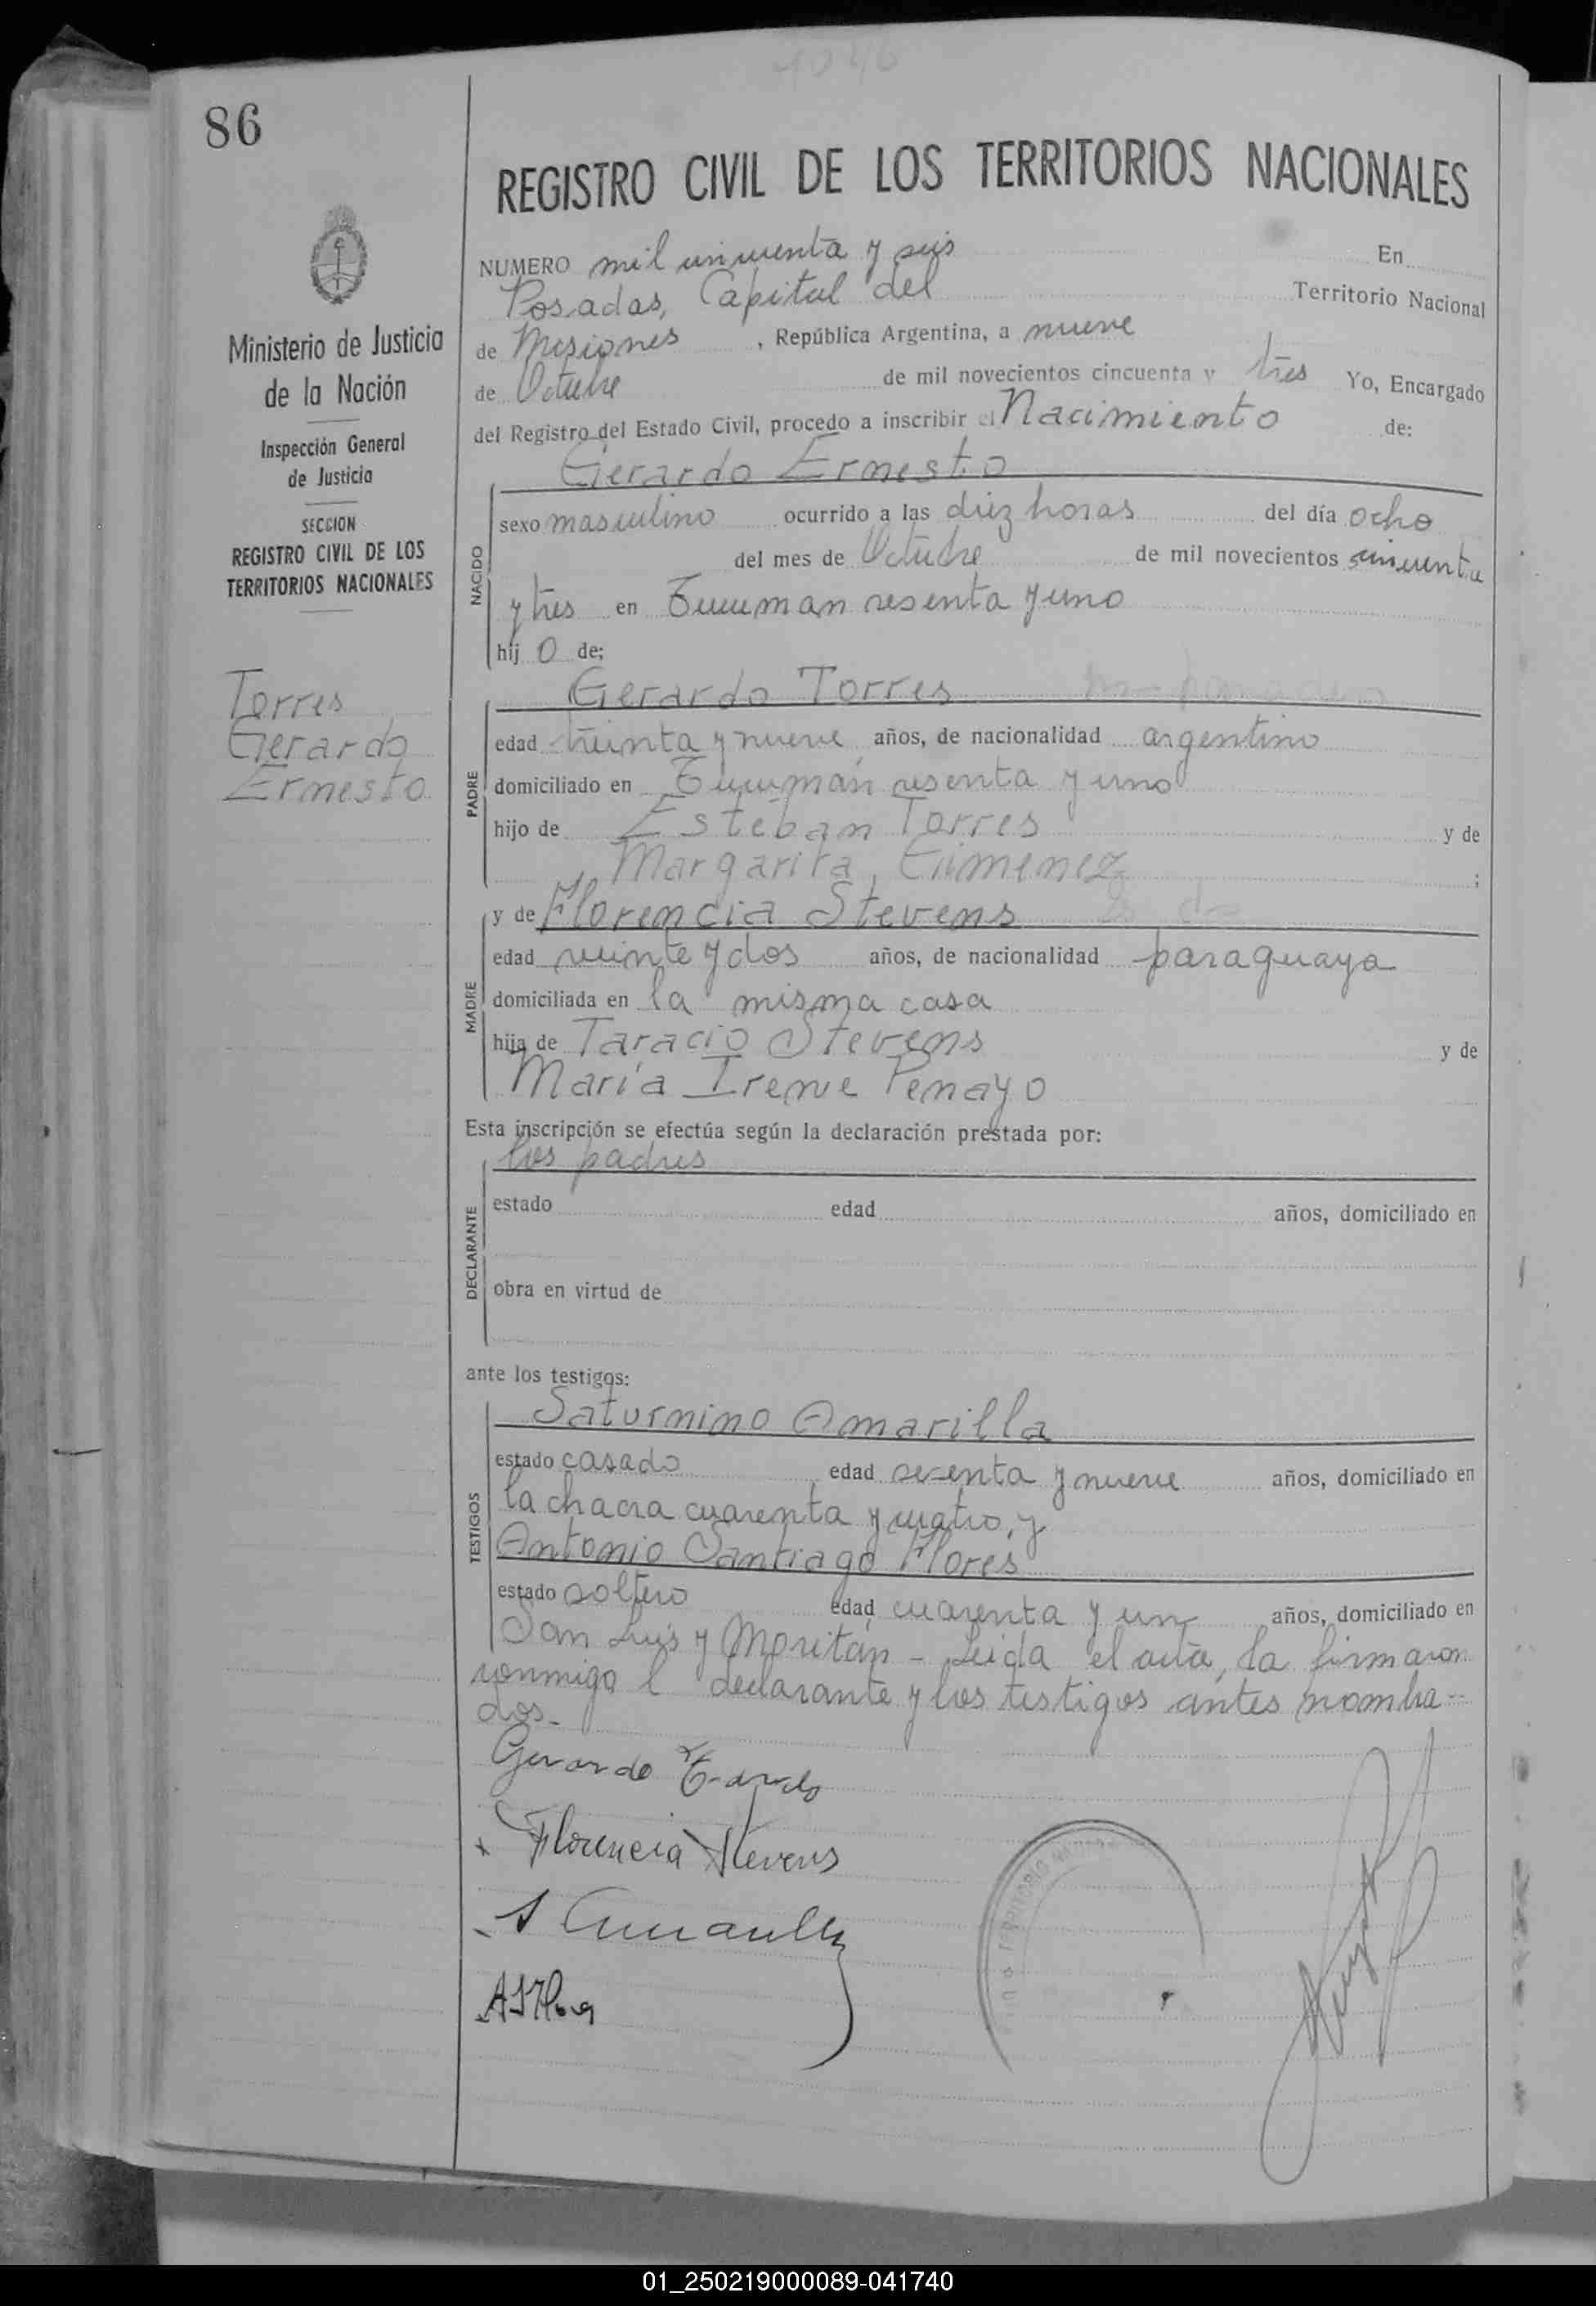 86
REGISTRO CIVIL DE LOS TERRITORIOS NACIONALES
Ministerio de Justicia
de la Nación
Inspección General
de Justicia
SECCION
REGISTRO CIVIL DE LOS
TERRITORIOS NACIONALES
Torres
Gerardo
Ernesto
NUMERO mil cincuenta y seis En
Posadas, Capital del Territorio Nacional
de Misiones , República Argentina, a nueve
de Octubre de mil novecientos cincuenta y tres Yo, Encargado
del Registro del Estado Civil, procedo a inscribir el Nacimiento de:
Gerardo Ernesto
NACIDO
sexo masculino ocurrido a las diez horas del día ocho
del mes de Octubre de mil novecientos cincuenta
y tres en Tucuman sesenta y uno
hij o de;
Gerardo Torres
PADRE
edad treinta y nueve años, de nacionalidad argentino
domiciliado en Tucumán sesenta y uno
hijo de Esteban Torres y de
Margarita Gimenez ;
y de Florencia Stevens
MADRE
edad veinte y dos años, de nacionalidad paraguaya
domiciliada en la misma casa
hija de Taracio Stevens y de
María Irene Penayo
Esta inscripción se efectúa según la declaración prestada por:
los padres
DECLARANTE
estado edad años, domiciliado en
obra en virtud de
ante los testigos:
Saturnino Amarilla
TESTIGOS
estado casado edad sesenta y nueve años, domiciliado en
la chacra cuarenta y cuatro, y
Antonio Santiago Flores
estado soltero edad cuarenta y un años, domiciliado en
San Luis y Moritán - Leida el acta, la firmaron
conmigo l declarante y los testigos antes nombra-
dos.-
Gerardo
Florencia Stevens
01_250219000089-041740